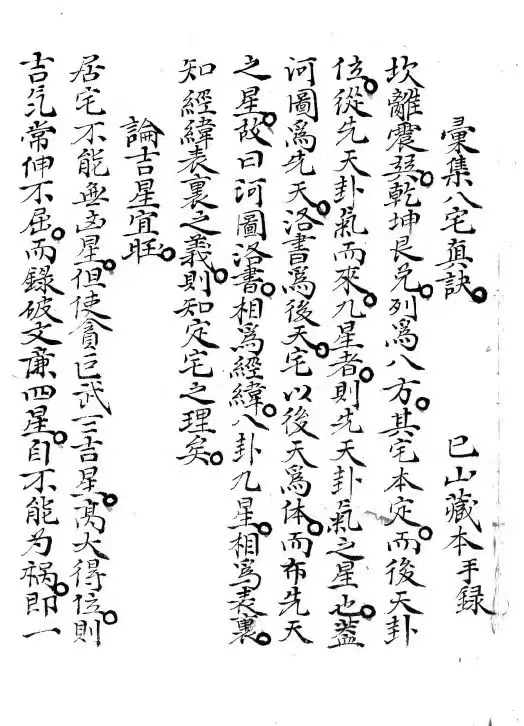 彙集八宅真訣。 巳山藏本手録
坎離震巽。乾坤艮兑。列爲八方。其宅本定。而後天卦
位。從先天卦氣而來。九星者。則先天卦氣之星也。蓋
河圖爲先天。洛書爲後天。宅以後天爲体。而布先天
之星。故曰河圖洛書。相爲經緯。八卦九星。相爲表裏。
知經緯表裏之義。則知定宅之理矣。
論吉星宜旺。
居宅不能無凶星。但使貪巨武三吉星。高大得位。則
吉气常伸不屈。而録破文廉四星。自不能为禍。即一